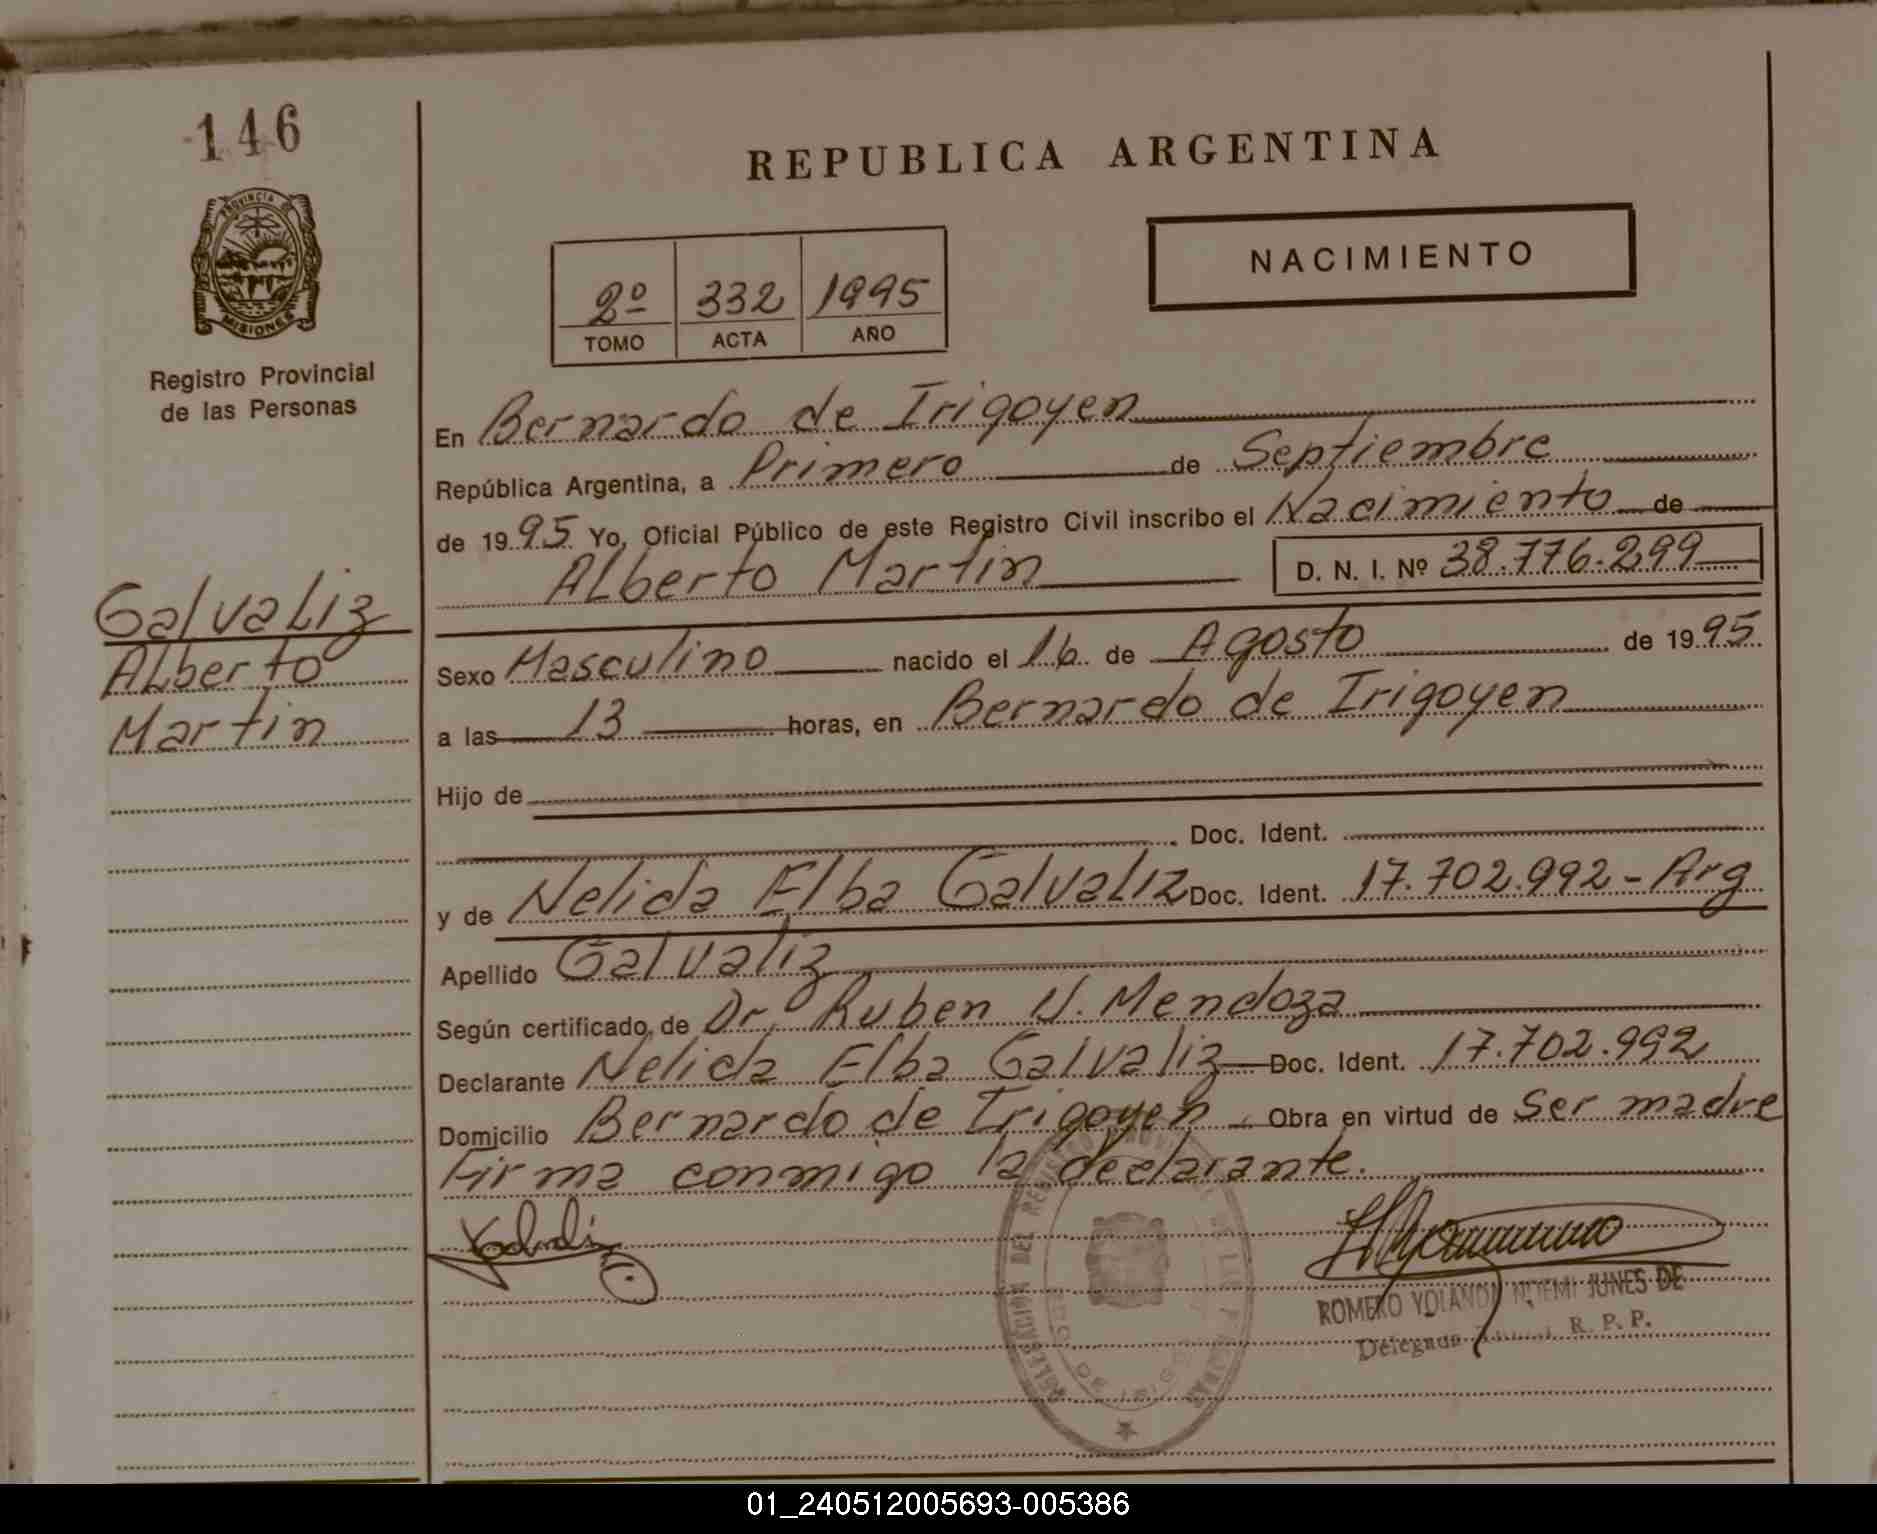 146
PROVINCIA DE
MISIONES
Registro Provincial
de las Personas
Galvaliz
Alberto
Martin
REPUBLICA ARGENTINA
NACIMIENTO
2º 332 1995
TOMO ACTA AÑO
En Bernardo de Irigoyen
República Argentina, a Primero de Septiembre
de 1995 Yo, Oficial Público de este Registro Civil inscribo el Nacimiento de
Alberto Martin D. N. I. Nº 38.776.299
Sexo Masculino nacido el 16 de Agosto de 1995
a las 13 horas, en Bernardo de Irigoyen
Hijo de
Doc. Ident.
y de Nelida Elba Galvaliz Doc. Ident. 17.702.992 - Arg
Apellido Galvaliz
Según certificado de Dr. Ruben N. Mendoza
Declarante Nelida Elba Galvaliz Doc. Ident. 17.702.992
Domicilio Bernardo de Irigoyen Obra en virtud de Ser madre
Firma conmigo la declarante.
ROMERO YOLANDA NOEMI JUNES DE
Delegada R. P. P.
01_240512005693-005386